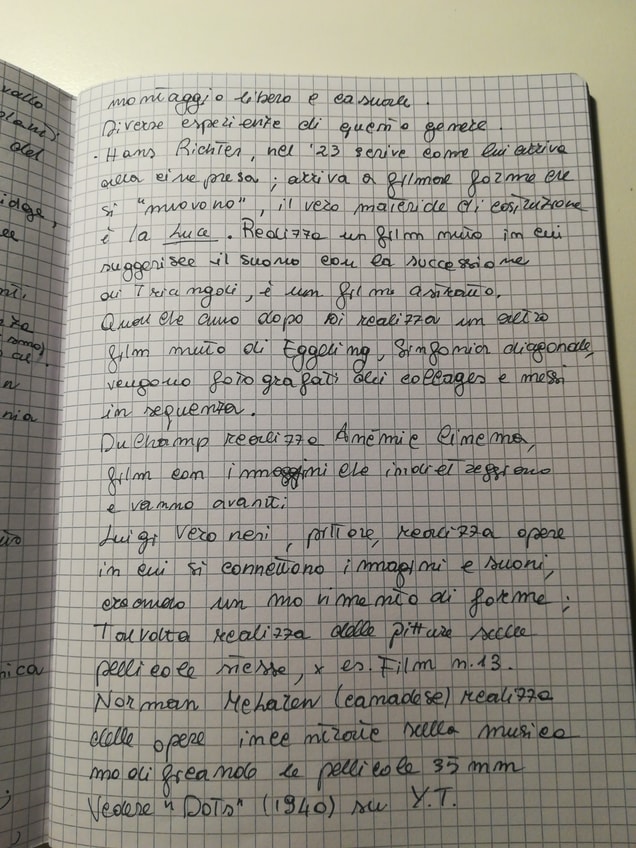 vallo
montaggio libero e casuale.
Diverse esperienze di questo genere.
del
· Hans Richter, nel '23 scrive come lui arriva
alla cinepresa; arriva a filmare forme che
si "muovono", il vero materiale di costruzione
è la Luce. Realizza un film muto in cui
suggerisce il suono con la successione
di Triangoli, è un film astratto.
Qualche anno dopo si realizza un altro
film muto di Eggeling, Sinfonia diagonale,
vengono fotografati dei collages e messi
in sequenza.
nia
Duchamp realizza Anémic Cinema,
film con immagini che indietreggiano
e vanno avanti;
Luigi Veronesi, pittore, realizza opere
in cui si connettono immagini e suoni,
creando un movimento di forme;
Talvolta realizza delle pitture sulle
pellicole stesse, x es. Film n.13.
nica
Norman McLaren (canadese) realizza
delle opere incentrate sulla musica
modificando le pellicole 35 mm
Vedere "Dots" (1940) su Y.T.